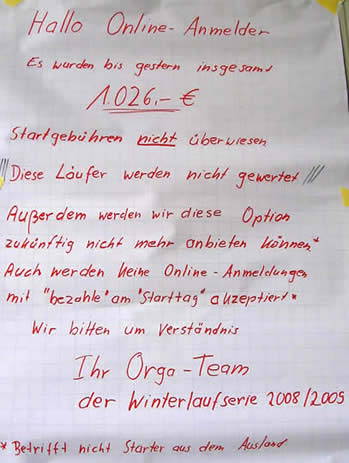 Hallo Online-Anmelder
Es wurden bis gestern insgesamt
1.026,- €
Startgebühren nicht überwiesen
/// Diese Läufer werden nicht gewertet ///
Außerdem werden wir diese Option
zukünftig nicht mehr anbieten können*
Auch werden keine Online-Anmeldungen
mit "bezahle" am "Starttag" akzeptiert*
Wir bitten um Verständnis
Ihr Orga-Team
der Winterlaufserie 2008/2009
* Betrifft nicht Starter aus dem Ausland